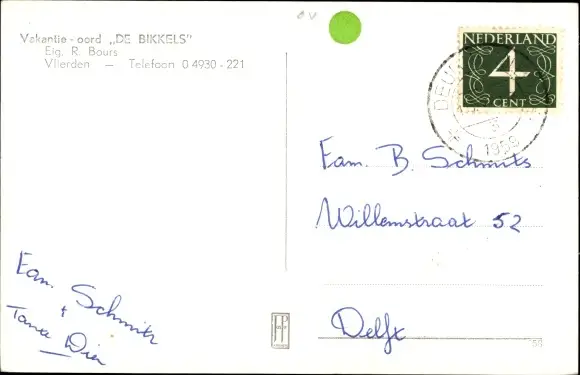 Vakantie-oord „DE BIKKELS"
Eig. R. Bours
Vlierden — Telefoon 0 4930 - 221
NEDERLAND
4
CENT
1959
Fam. B. Schmits
Willemstraat 52
Delft
Fam. Schmitz
+
Tante Dien